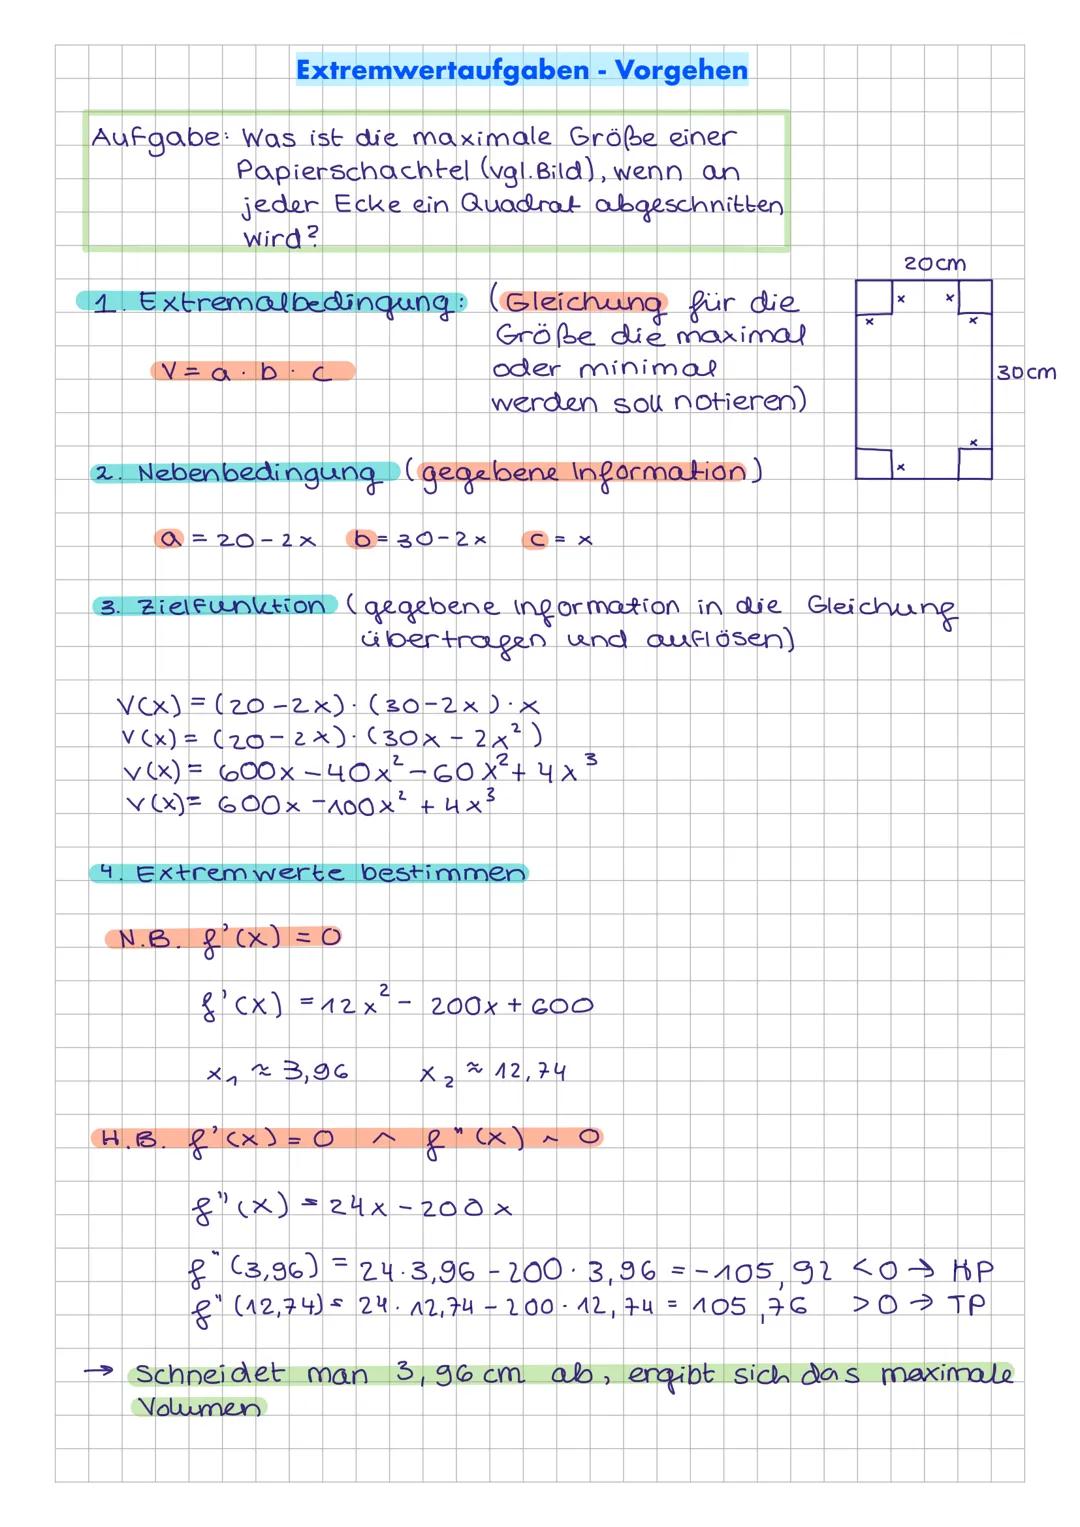 Extremwertaufgaben - Vorgehen
Aufgabe: Was ist die maximale Größe einer
Papierschachtel (vgl. Bild), wenn an
jeder Ecke ein Quadrat abgeschnitten
wird?
20cm
1. Extremalbedingung: (Gleichung für die
Größe die maximal
oder minimal
werden soll notieren)
V = a · b · c
x x
x x
30cm
x
x
2. Nebenbedingung (gegebene Information)
a = 20-2x b = 30-2x c = x
3. Zielfunktion (gegebene Information in die Gleichung
übertragen und auflösen)
V(x) = (20-2x)·(30-2x)·x
V(x) = (20-2x)·(30x-2x²)
V(x) = 600x-40x²-60x²+4x³
V(x) = 600x-100x²+4x³
4. Extremwerte bestimmen
N.B. f'(x) = 0
f'(x) = 12x² - 200x + 600
x₁ ≈ 3,96 x₂ ≈ 12,74
H.B. f'(x) = 0 ^ f"(x) ~ 0
f"(x) = 24x - 200x
f"(3,96) = 24·3,96 - 200·3,96 = -105,92 <0 → HP
f"(12,74) = 24·12,74 - 200·12,74 = 105,76 >0 → TP
→ Schneidet man 3,96 cm ab, ergibt sich das maximale
Volumen